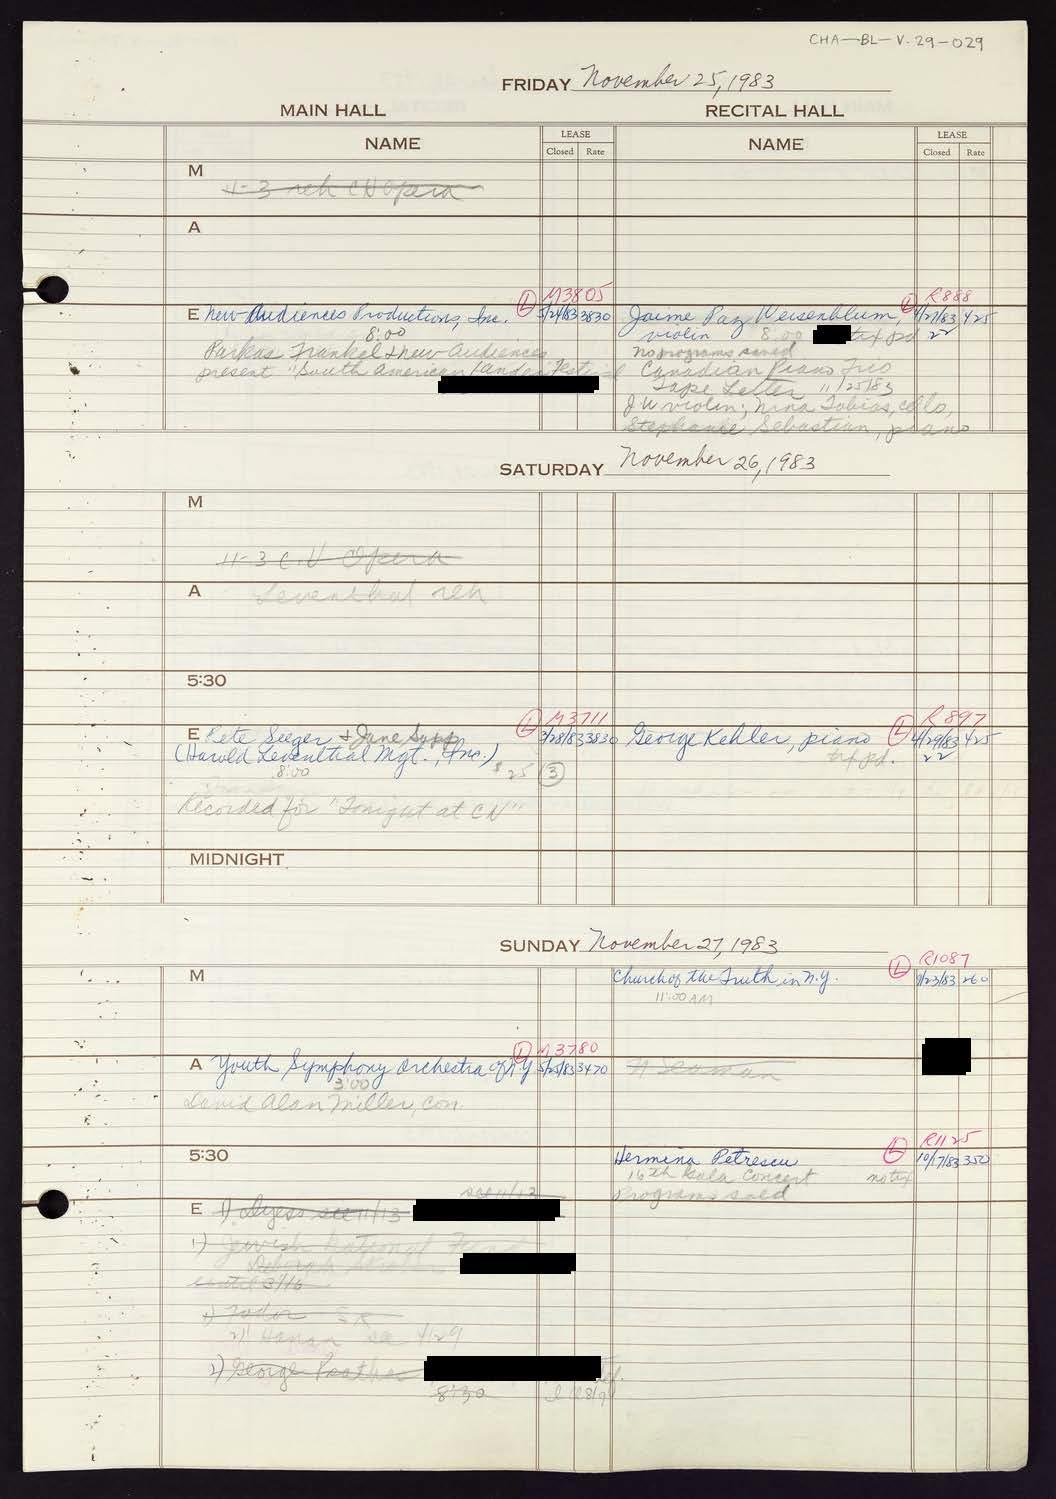 CHA-BL-V.29-029
FRIDAY November 25, 1983
MAIN HALL RECITAL HALL
NAME LEASE NAME LEASE
Closed Rate Closed Rate
M
11-3 reh CH Opera
A
L M3805 L R888
E New Audiences Productions, Inc. 5/24/83 3830 Jaime Paz Weisenblum, 4/27/83 425
8:00 violin 8:00 tix pd 22
Parkas Frankel & New Audiences no programs saved
present "South American Canadian Piano Trio
Tape Letter 11/25/83
JW violin; Nina Tobias, cello,
Stephanie Sebastian, piano
SATURDAY November 26, 1983
M
11-3 C.H Opera
A Leventhal reh
5:30
L M3711 L R897
E Pete Seeger & Jane Sapp 3/28/83 3830 George Kehler, piano 4/29/83 425
(Harold Leventhal Mgt., Inc.) tix pd. 22
8:00 $25 3
Recorded for "Tonight at CH"
MIDNIGHT
SUNDAY November 27, 1983
L R1087
M Church of the Truth in N.Y. 9/23/83 260
11:00 AM
L M3780
A Youth Symphony Orchestra of NY 5/25/83 3470 N Seaman
3:00
David Alan Miller, con.
L R1125
5:30 Hermina Petrescu 10/17/83 350
16th Gala Concert no tix
see 11/13 Programs sold
E 1) see 11/13
1) Jewish National Fund
Deborah
until 3/16
1)
2) Hanan see 4/29
2) George
8:30